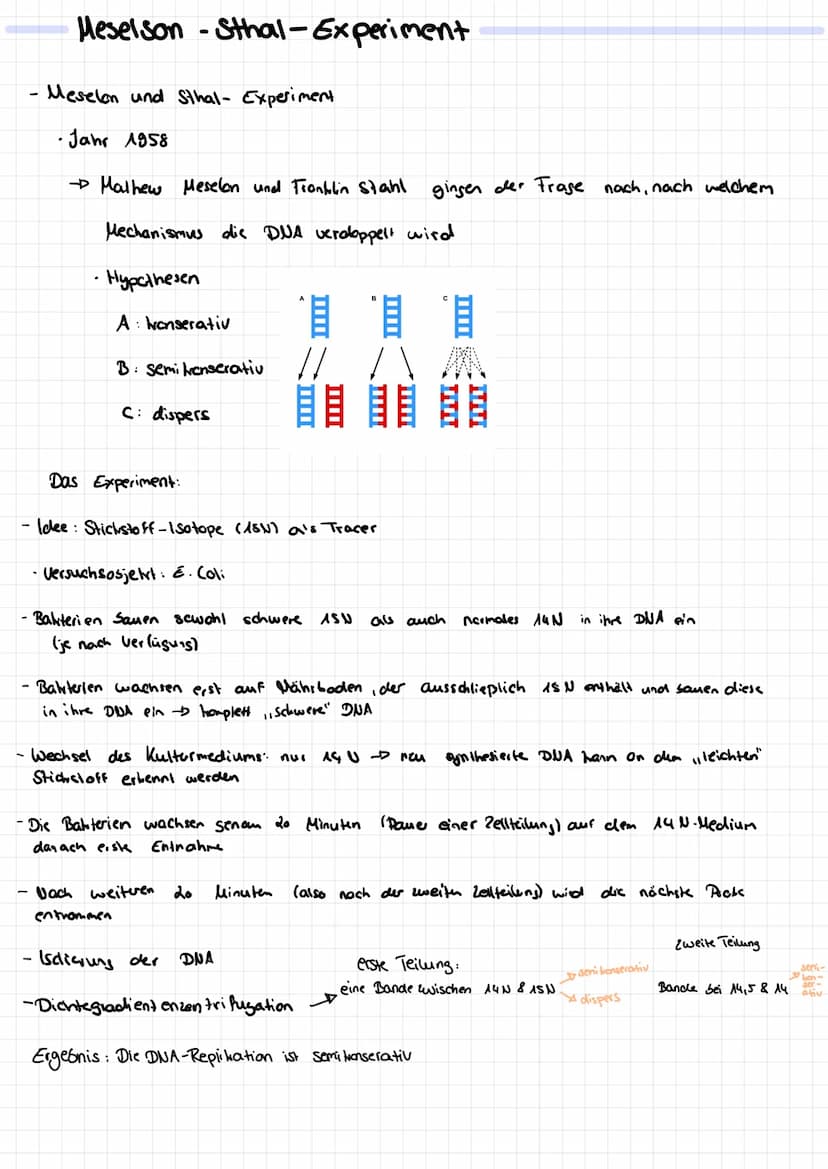 Meselson - Sthal - Experiment
- Meselon und Sthal- Experiment
· Jahr 1958
→ Mathew Meselon und Franklin Stahl gingen der Frage nach, nach welchem
Mechanismus die DNA verdoppelt wird
· Hypothesen
A B C
A: konserativ
B: semikonserativ
C: dispers
Das Experiment:
- Idee: Stickstoff-Isotope (15N) als Tracer
· Versuchsobjekt: E. Coli
- Bakterien bauen sowohl schwere 15N als auch normales 14N in ihre DNA ein
(je nach Verfügung)
- Bakterien wachsen erst auf Nährboden, der ausschließlich 15N enthält und bauen diese
in ihre DNA ein → komplett „schwere" DNA
- Wechsel des Kulturmediums: nur 14N → neu synthesierte DNA kann an dem „leichten"
Stickstoff erkennt werden
- Die Bakterien wachsen genau 20 Minuten (Dauer einer Zellteilung) auf dem 14N-Medium
danach erste Entnahme
- Nach weiteren 20 Minuten (also nach der zweiten Zellteilung) wird die nächste
entnommen
- Isolierung der DNA
erste Teilung:
zweite Teilung
- Dichtegradientenzentrifugation → eine Bande zwischen 14N & 15N
→ semikonserativ
→ dispers
Bande bei 14,5 & 14
→ semi-
kon-
ser-
ativ
Ergebnis: Die DNA-Replikation ist semikonserativ